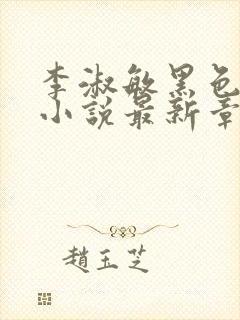 李淑敏黑色
小說最新章
趙玉芝